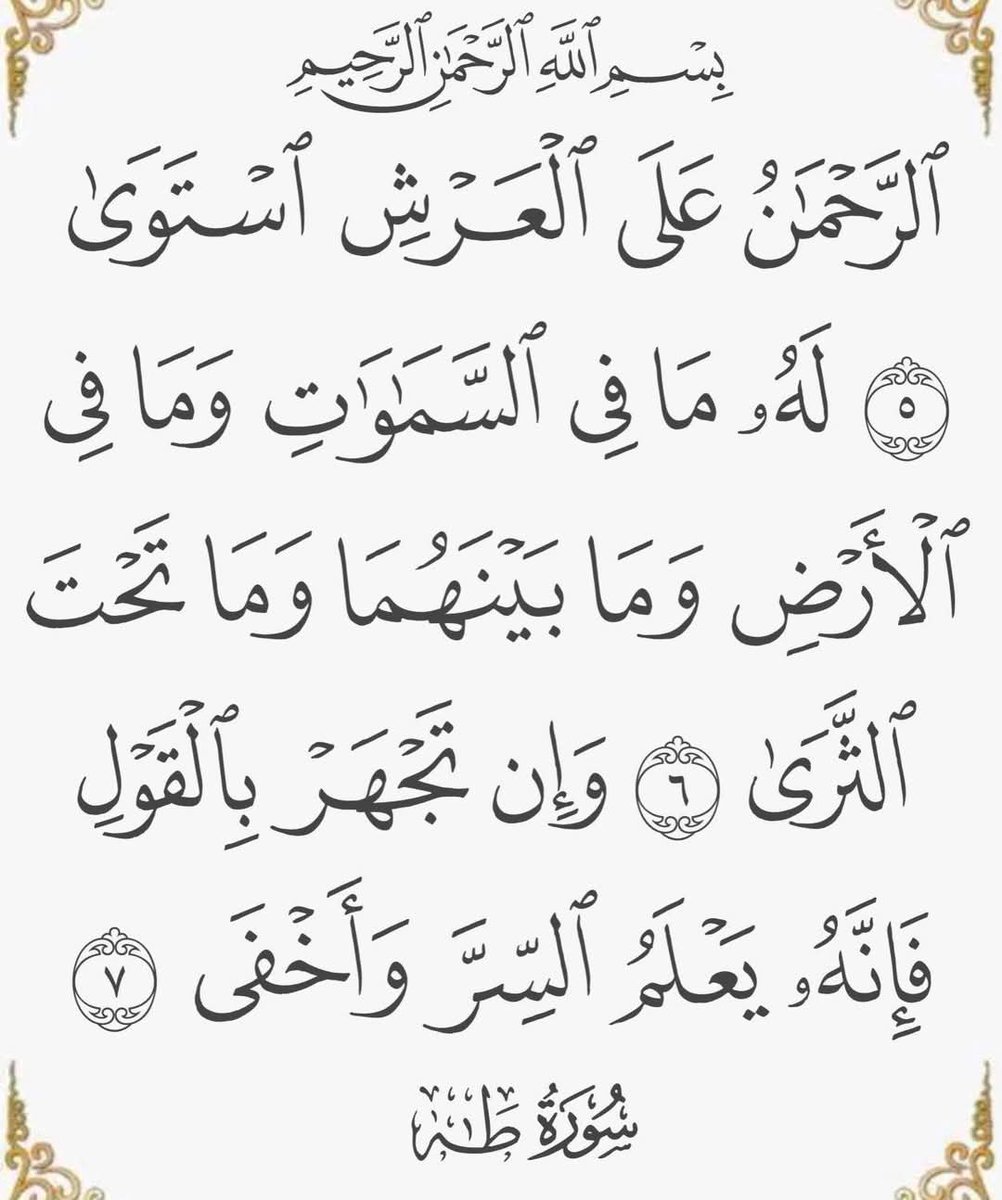 بِسْمِ ٱللَّهِ ٱلرَّحْمَٰنِ ٱلرَّحِيمِ
ٱلرَّحْمَٰنُ عَلَى ٱلْعَرْشِ ٱسْتَوَىٰ
٥ لَهُۥ مَا فِى ٱلسَّمَٰوَٰتِ وَمَا فِى
ٱلْأَرْضِ وَمَا بَيْنَهُمَا وَمَا تَحْتَ
ٱلثَّرَىٰ ٦ وَإِن تَجْهَرْ بِٱلْقَوْلِ
فَإِنَّهُۥ يَعْلَمُ ٱلسِّرَّ وَأَخْفَى ٧
سُورَةُ طَٰهٰ